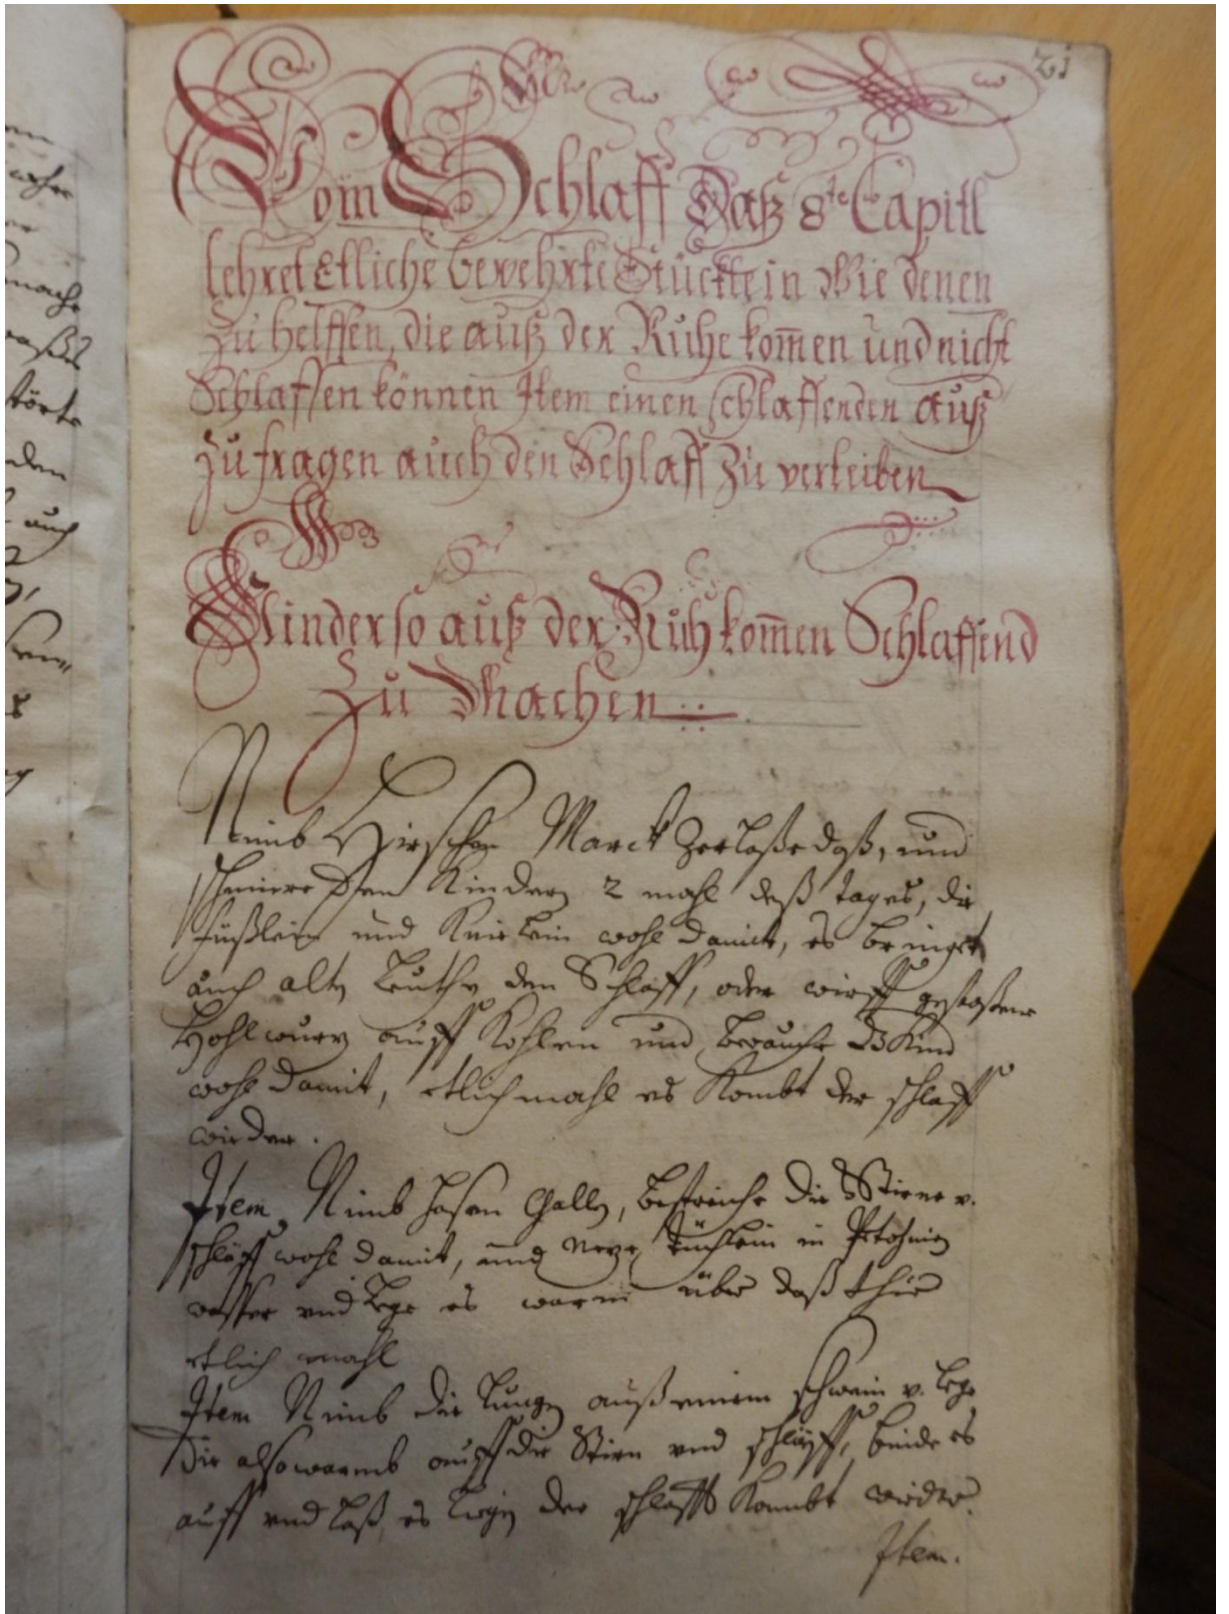 21
Vom Schlaff Daß 8te Capitl
lehret Etliche bewehrte Stücklein Wie denen
zu helffen, die auß der Ruhe kom̄en und nicht
Schlaffen können Item einen schlaffenden auß
zufragen auch den Schlaff zu verteiben
Kinder so auß der Ruh kom̄en Schlaffend
Zu Machen
Nimb Hirschen Marck zerlaße daß, und
schmiere den Kindern 2 mahl deß tages, die
füßlein und Knielein wohl damit, es bringet
auch alten Leuthen den Schlaff, oder wirff gestoßene
Hohlwurz auff Kohlen und berauche dz Kind
wohl damit, etlich mahl es Kombt der schlaff
wieder.
Item Nimb hasen Gallen, bestreiche die Stirne v.
schläff wohl damit, und neze tüchlein in
wasser und lege es warm über daß
etlich mahl
Item Nimb die Lungen auß einem schwein v. lege
die also warmb auff die Stirn und schläff, binde es
auff und laß es liegen der schlaff Kombt wieder.
Item.